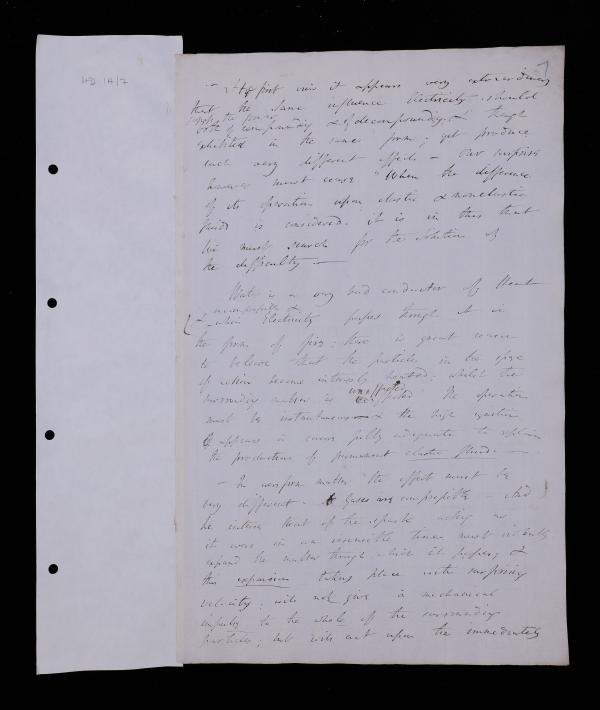 HD 1A/7
7
— At first view it appears very extraordinary
that the same influence Electricity should
possess the power
both of compounding & of decompounding; & though
exhibited in the same form; yet produce
such very different effects — Our surprise
however must cease "When the difference
of its operation upon elastic & nonelastic
fluids is considered. it is in this that
we must search for the solution of
the difficulty. —
Water is a very bad conductor of Heat
incompressible &
& when Electricity passes through it in
the form of fire: there is great reason
to believe that the particles in its
of action become intensely heated: whilst the
surrounding matter is unaffected The operation
must be instantaneous & the high ignition
appears in every fully adequate to explain
the production of permanent elastic fluid. —
— In aeriform matter the effect must be
very different. Gases are compressible — And
the intense heat of the spark acting as
it were in an insensible time must violently
expand the matter through which it passes; &
this expansion taking place with surprising
velocity; will not give a mechanical
impulse to the whole of the surrounding
particles; but will act upon the immediately